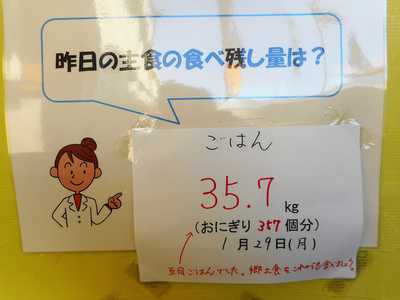 昨日の主食の食べ残し量は？
ごはん
35.7 kg
(おにぎり 357 個分)
1月29日(月)
五目ごはんでした。郷土食を